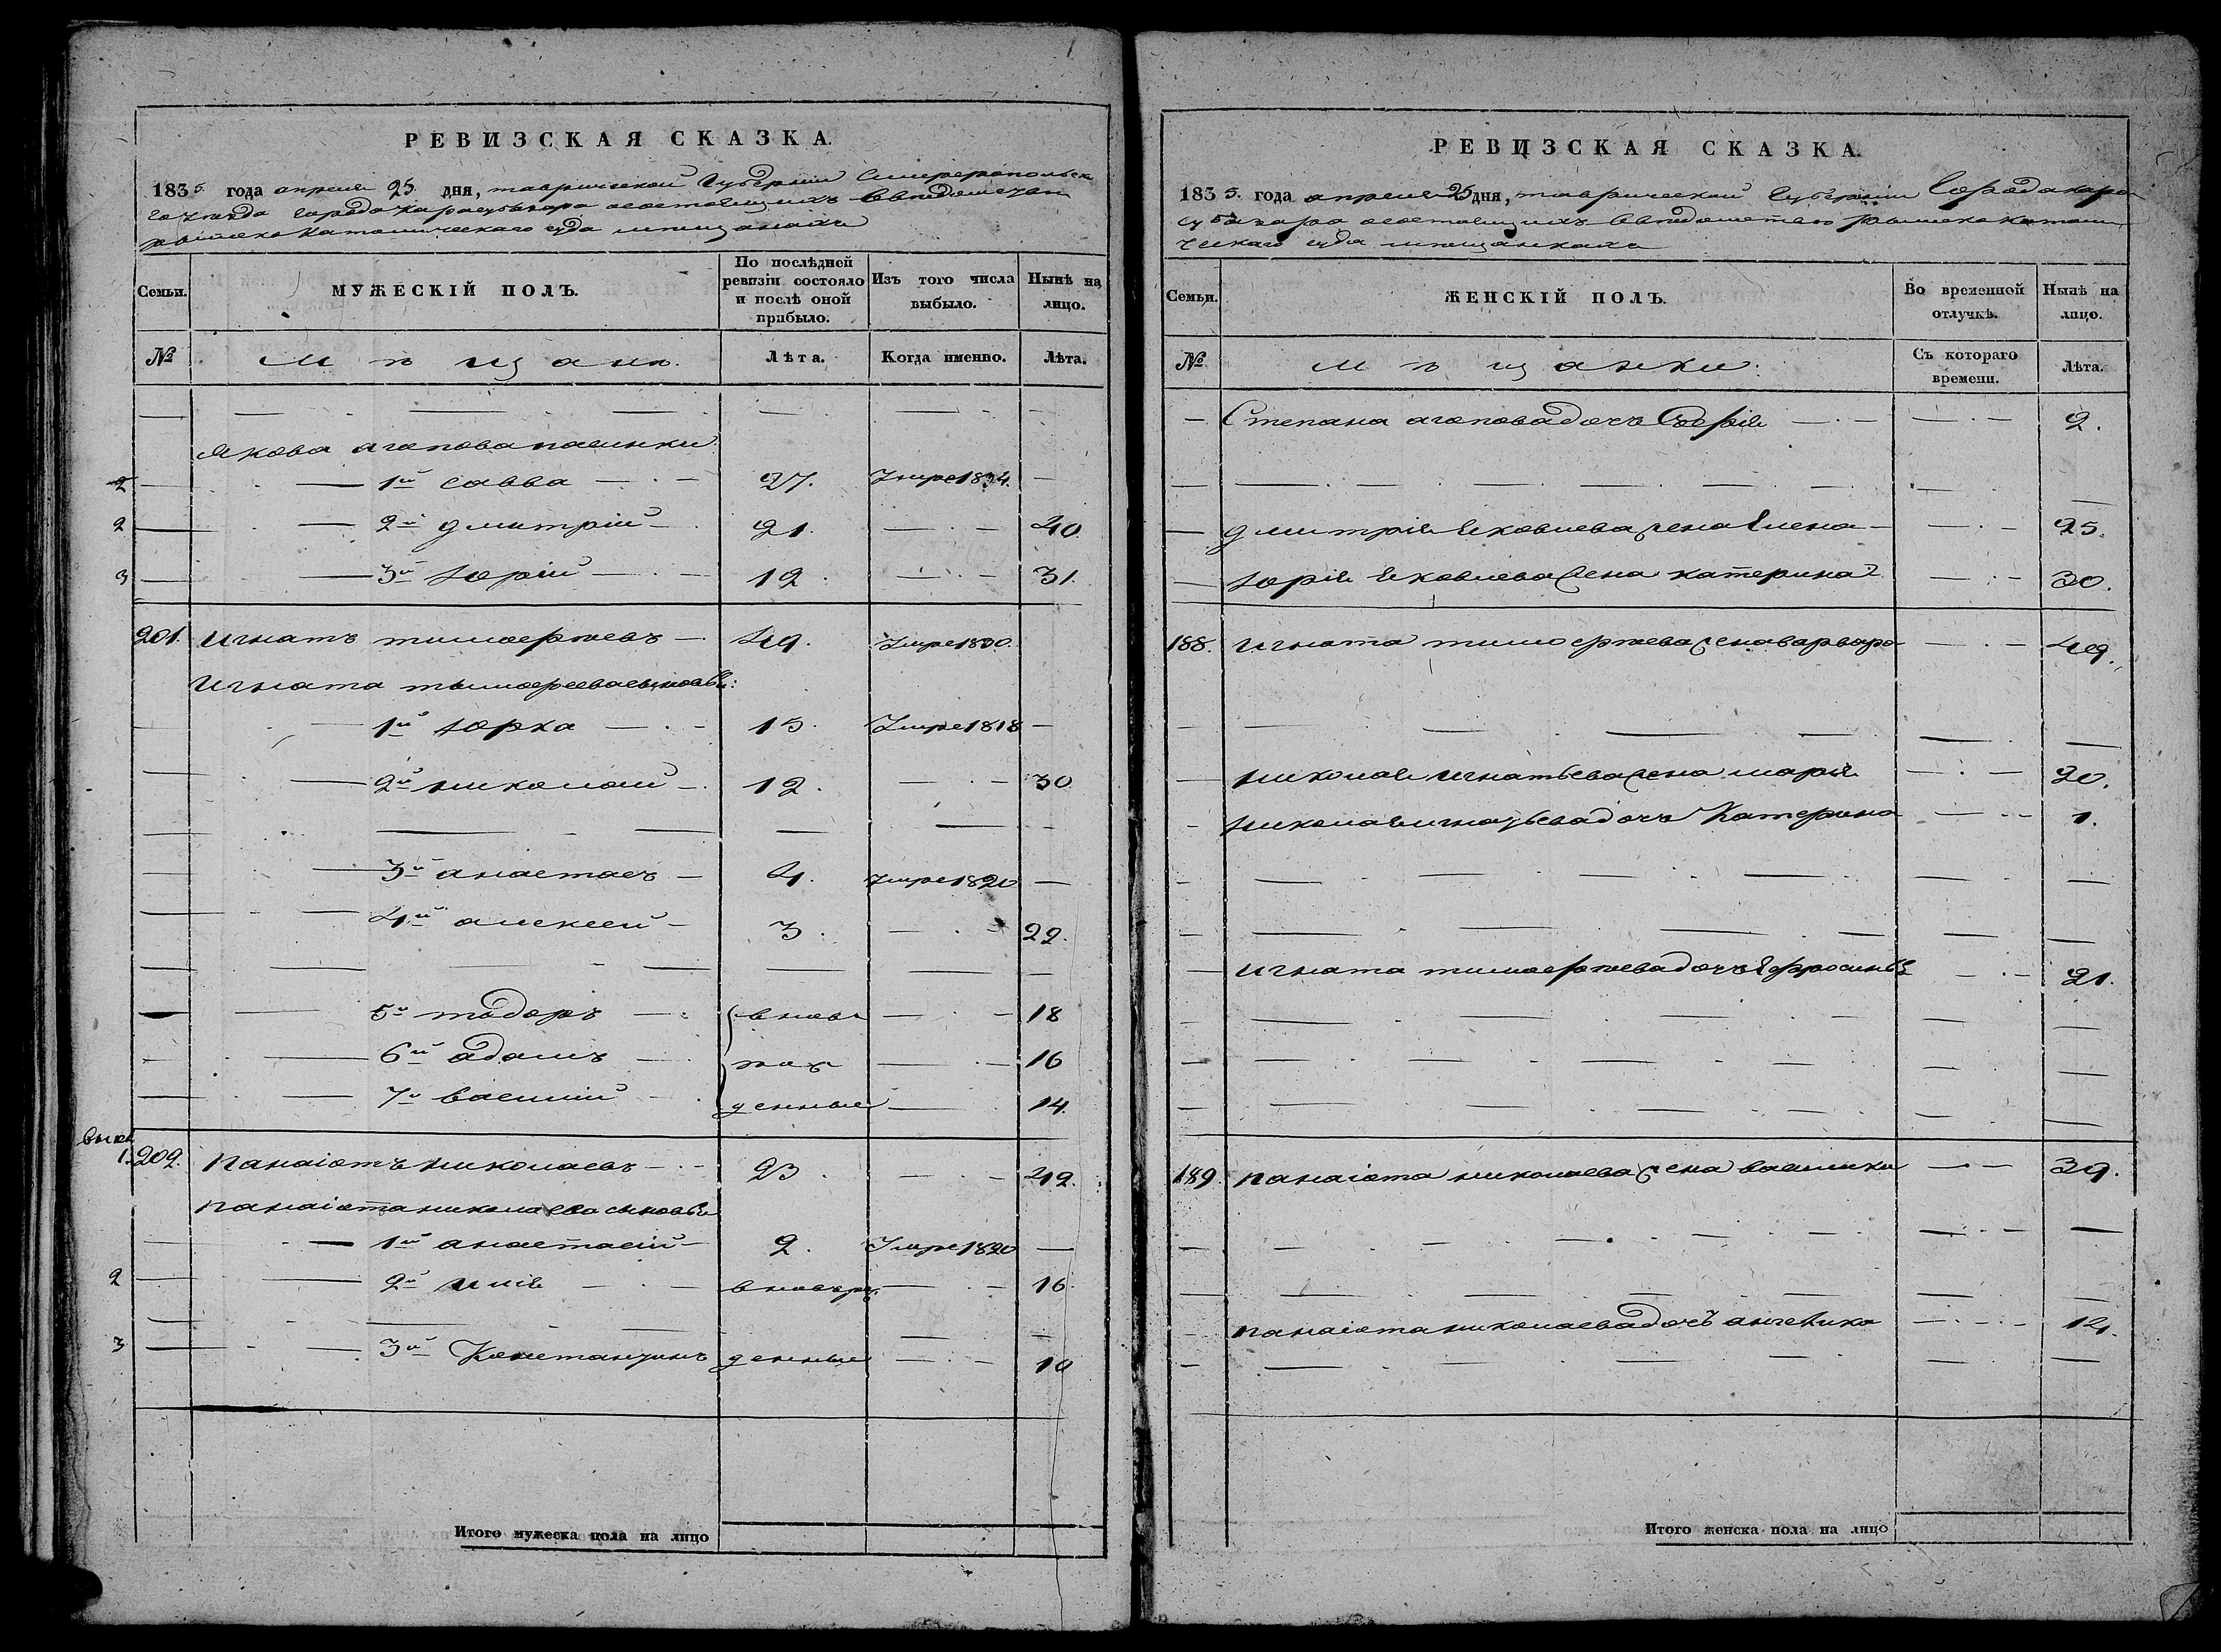 РЕВИЗСКАЯ СКАЗКА.
1835. года апреля 25. дня, таврической Губернии Симферопольска
го уезда города карасубазара состоящихъ вѣдомства
римско католическаго суда мѣщанахъ
Семьи. МУЖЕСКІЙ ПОЛЪ. По послѣдней ревизіи состояло и послѣ оной прибыло. Изъ того числа выбыло. Нынѣ на лицо.
№ мѣщанъ. Лѣта. Когда именно. Лѣта.
Якова агопова пасинки
2 1й савва 27. Умре 1834.
2 2й дмитрій 21. 40.
3 3й Юрій 12. 31.
201. Игнатъ тимоеріевъ 49. Умре 1830.
Игната тимоереева сыновья:
1й Юрка 15. Умре 1818
2й николай 12. 30
3й анастасъ 4. Умре 1820
4й алексей 3. 22.
5й тодоръ внов 18
6й адамъ рож 16
7й василій денные 14.
1. 202. Панаіотъ николаевъ 23. 42.
панаіота николаева сыновья
1й анастасій 2. Умре 1820
2 2й илія вноворож 16.
3 3й Константинъ денные 10
Итого мужеска пола на лицо
РЕВИЗСКАЯ СКАЗКА.
1835. года апреля 25 дня, таврической Губерніи Города кара
субазара состоящихъ вѣдомства римско католи
ческаго суда мѣщанкахъ
Семьи. ЖЕНСКІЙ ПОЛЪ. Во временной отлучкѣ. Нынѣ на лицо.
№ мѣщанки. Съ котораго времени. Лѣта.
Степана агопова дочь Софія 2.
дмитрія Яковлева жена Елена 25.
Юрія Яковлева жена катерина 30.
188. Игната тимоеріева жена варвара 49.
николая игнатьева жена марія 20.
николая игнатьева дочь Катерина 1.
Игната тимоеріева дочь Ефросинья 21.
189. панаіота николаева жена василики 39.
панаіота николаева дочь ангелика 14.
Итого женска пола на лицо